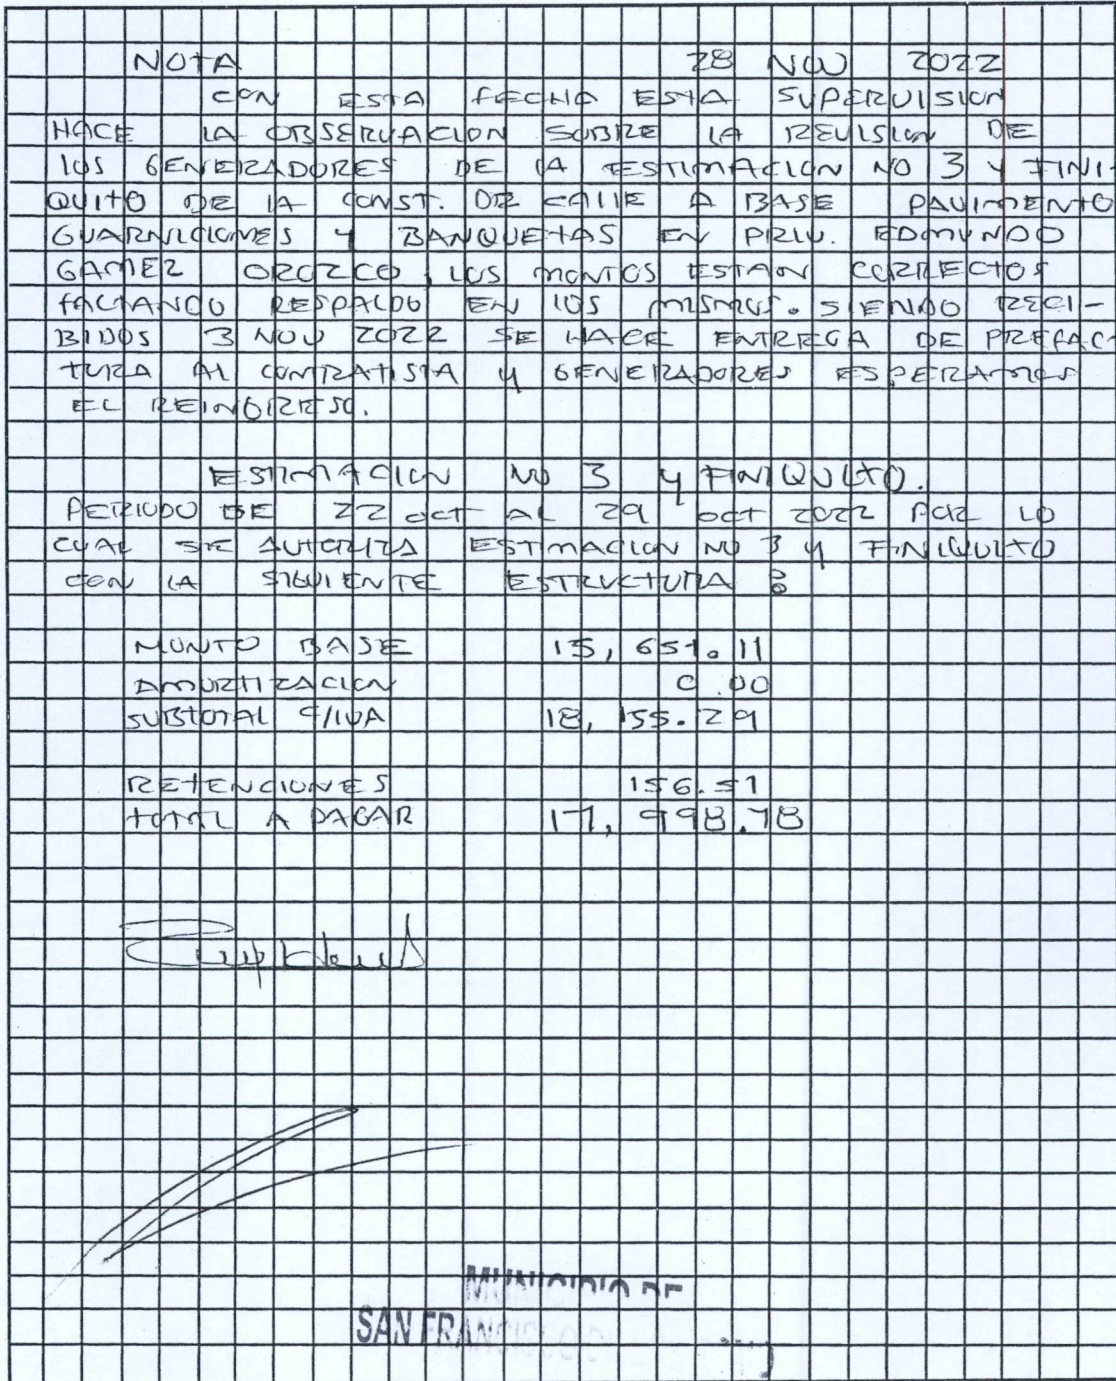 NOTA 28 NOV 2022
CON ESTA FECHA ESTA SUPERVISION
HACE LA OBSERVACION SOBRE LA REVISION DE
LOS GENERADORES DE LA ESTIMACION NO 3 Y FINI-
QUITO DE LA CONST. DE CALLE A BASE PAVIMENTO
GUARNICIONES Y BANQUETAS EN PRIV. EDMUNDO
GAMEZ OROZCO, LOS MONTOS ESTAN CORRECTOS
FALTANDO RESPALDO EN LOS MISMOS. SIENDO RECI-
BIDOS 3 NOV 2022 SE HACE ENTREGA DE PREFAC-
TURA AL CONTRATISTA Y GENERADORES ESPERAMOS
EL REINGRESO.
ESTIMACION NO 3 Y FINIQUITO.
PERIODO DE 22 OCT AL 29 OCT 2022 POR LO
CUAL SE AUTORIZA ESTIMACION NO 3 Y FINIQUITO
CON LA SIGUIENTE ESTRUCTURA :
MONTO BASE 15,651.11
AMORTIZACION 0.00
SUBTOTAL C/IVA 18,155.29
RETENCIONES 156.51
TOTAL A PAGAR 17,998.78
MUNICIPIO DE
SAN FRANCISCO DE